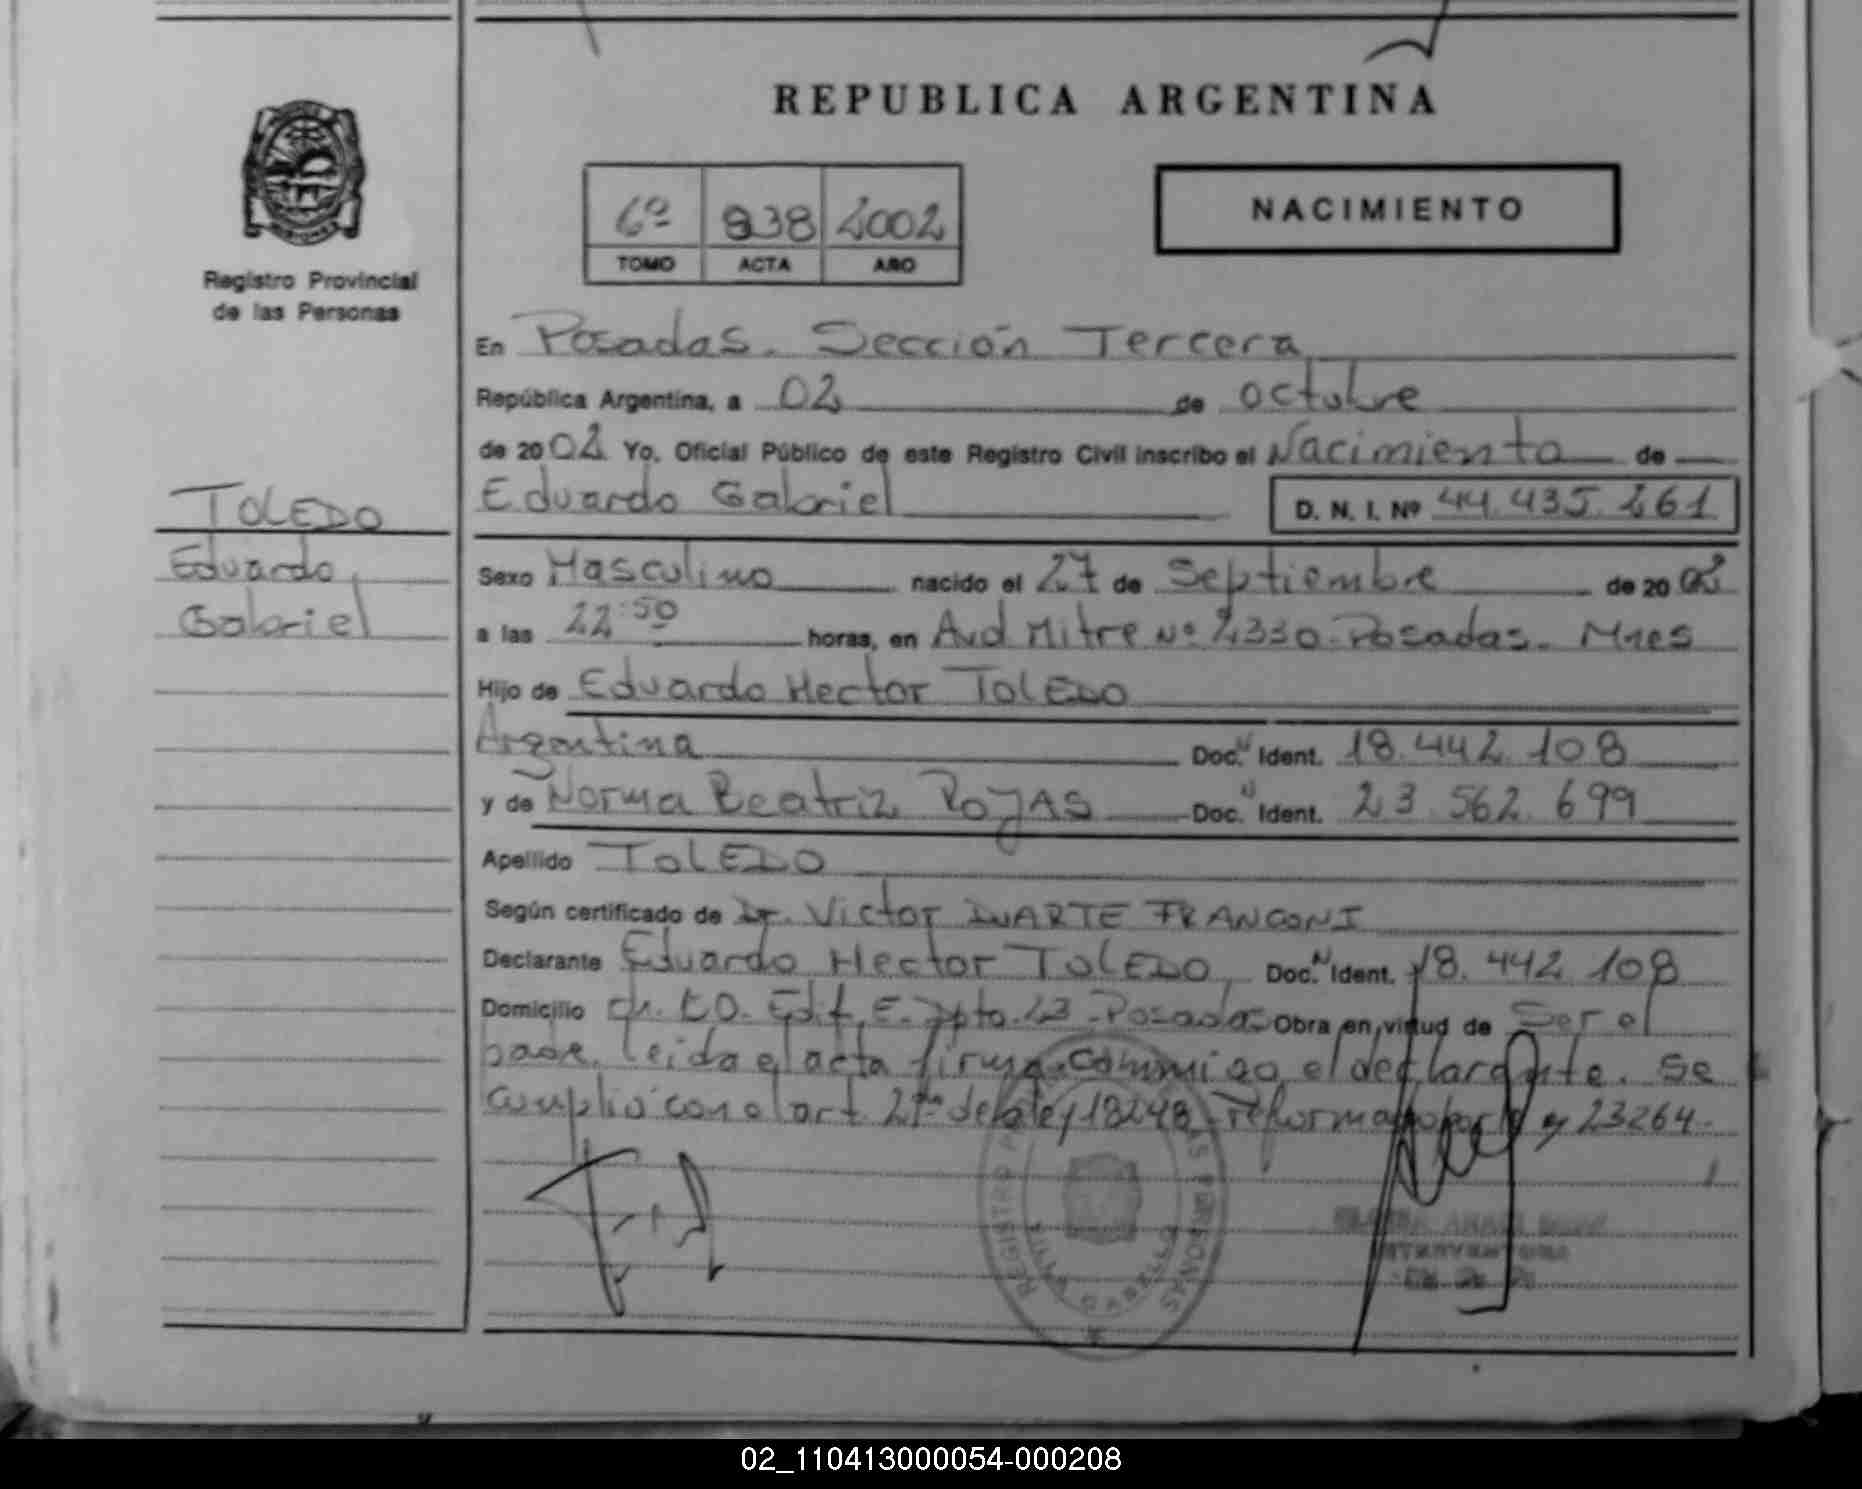 REPUBLICA ARGENTINA
Registro Provincial
de las Personas
6º 938 2002
TOMO ACTA AÑO
NACIMIENTO
En Posadas. Sección Tercera
República Argentina, a 02 de octubre
de 2002 Yo, Oficial Público de este Registro Civil inscribo el Nacimiento de
Eduardo Gabriel D. N. I. Nº 44.435.261
TOLEDO
Eduardo
Gabriel
Sexo Masculino nacido el 27 de Septiembre de 2002
a las 22:50 horas, en Avd Mitre Nº 2330-Posadas-Mnes
Hijo de Eduardo Hector TOLEDO
Argentina Doc. N Ident. 18.442.108
y de Norma Beatriz ROJAS Doc. N Ident. 23.562.699
Apellido TOLEDO
Según certificado de Dr. Victor DUARTE FRANCONI
Declarante Eduardo Hector TOLEDO Doc. N Ident. 18.442.108
Domicilio Ch. Edif. E. Dpto. 23-Posadas Obra en virtud de Ser el
padre. leida el acta firma conmigo el declarante. Se
cumplió con el art. de la ley 18248 reformado por la ley 23264.-
REGISTRO PERSONAS
VILLA CABELLO
02_110413000054-000208